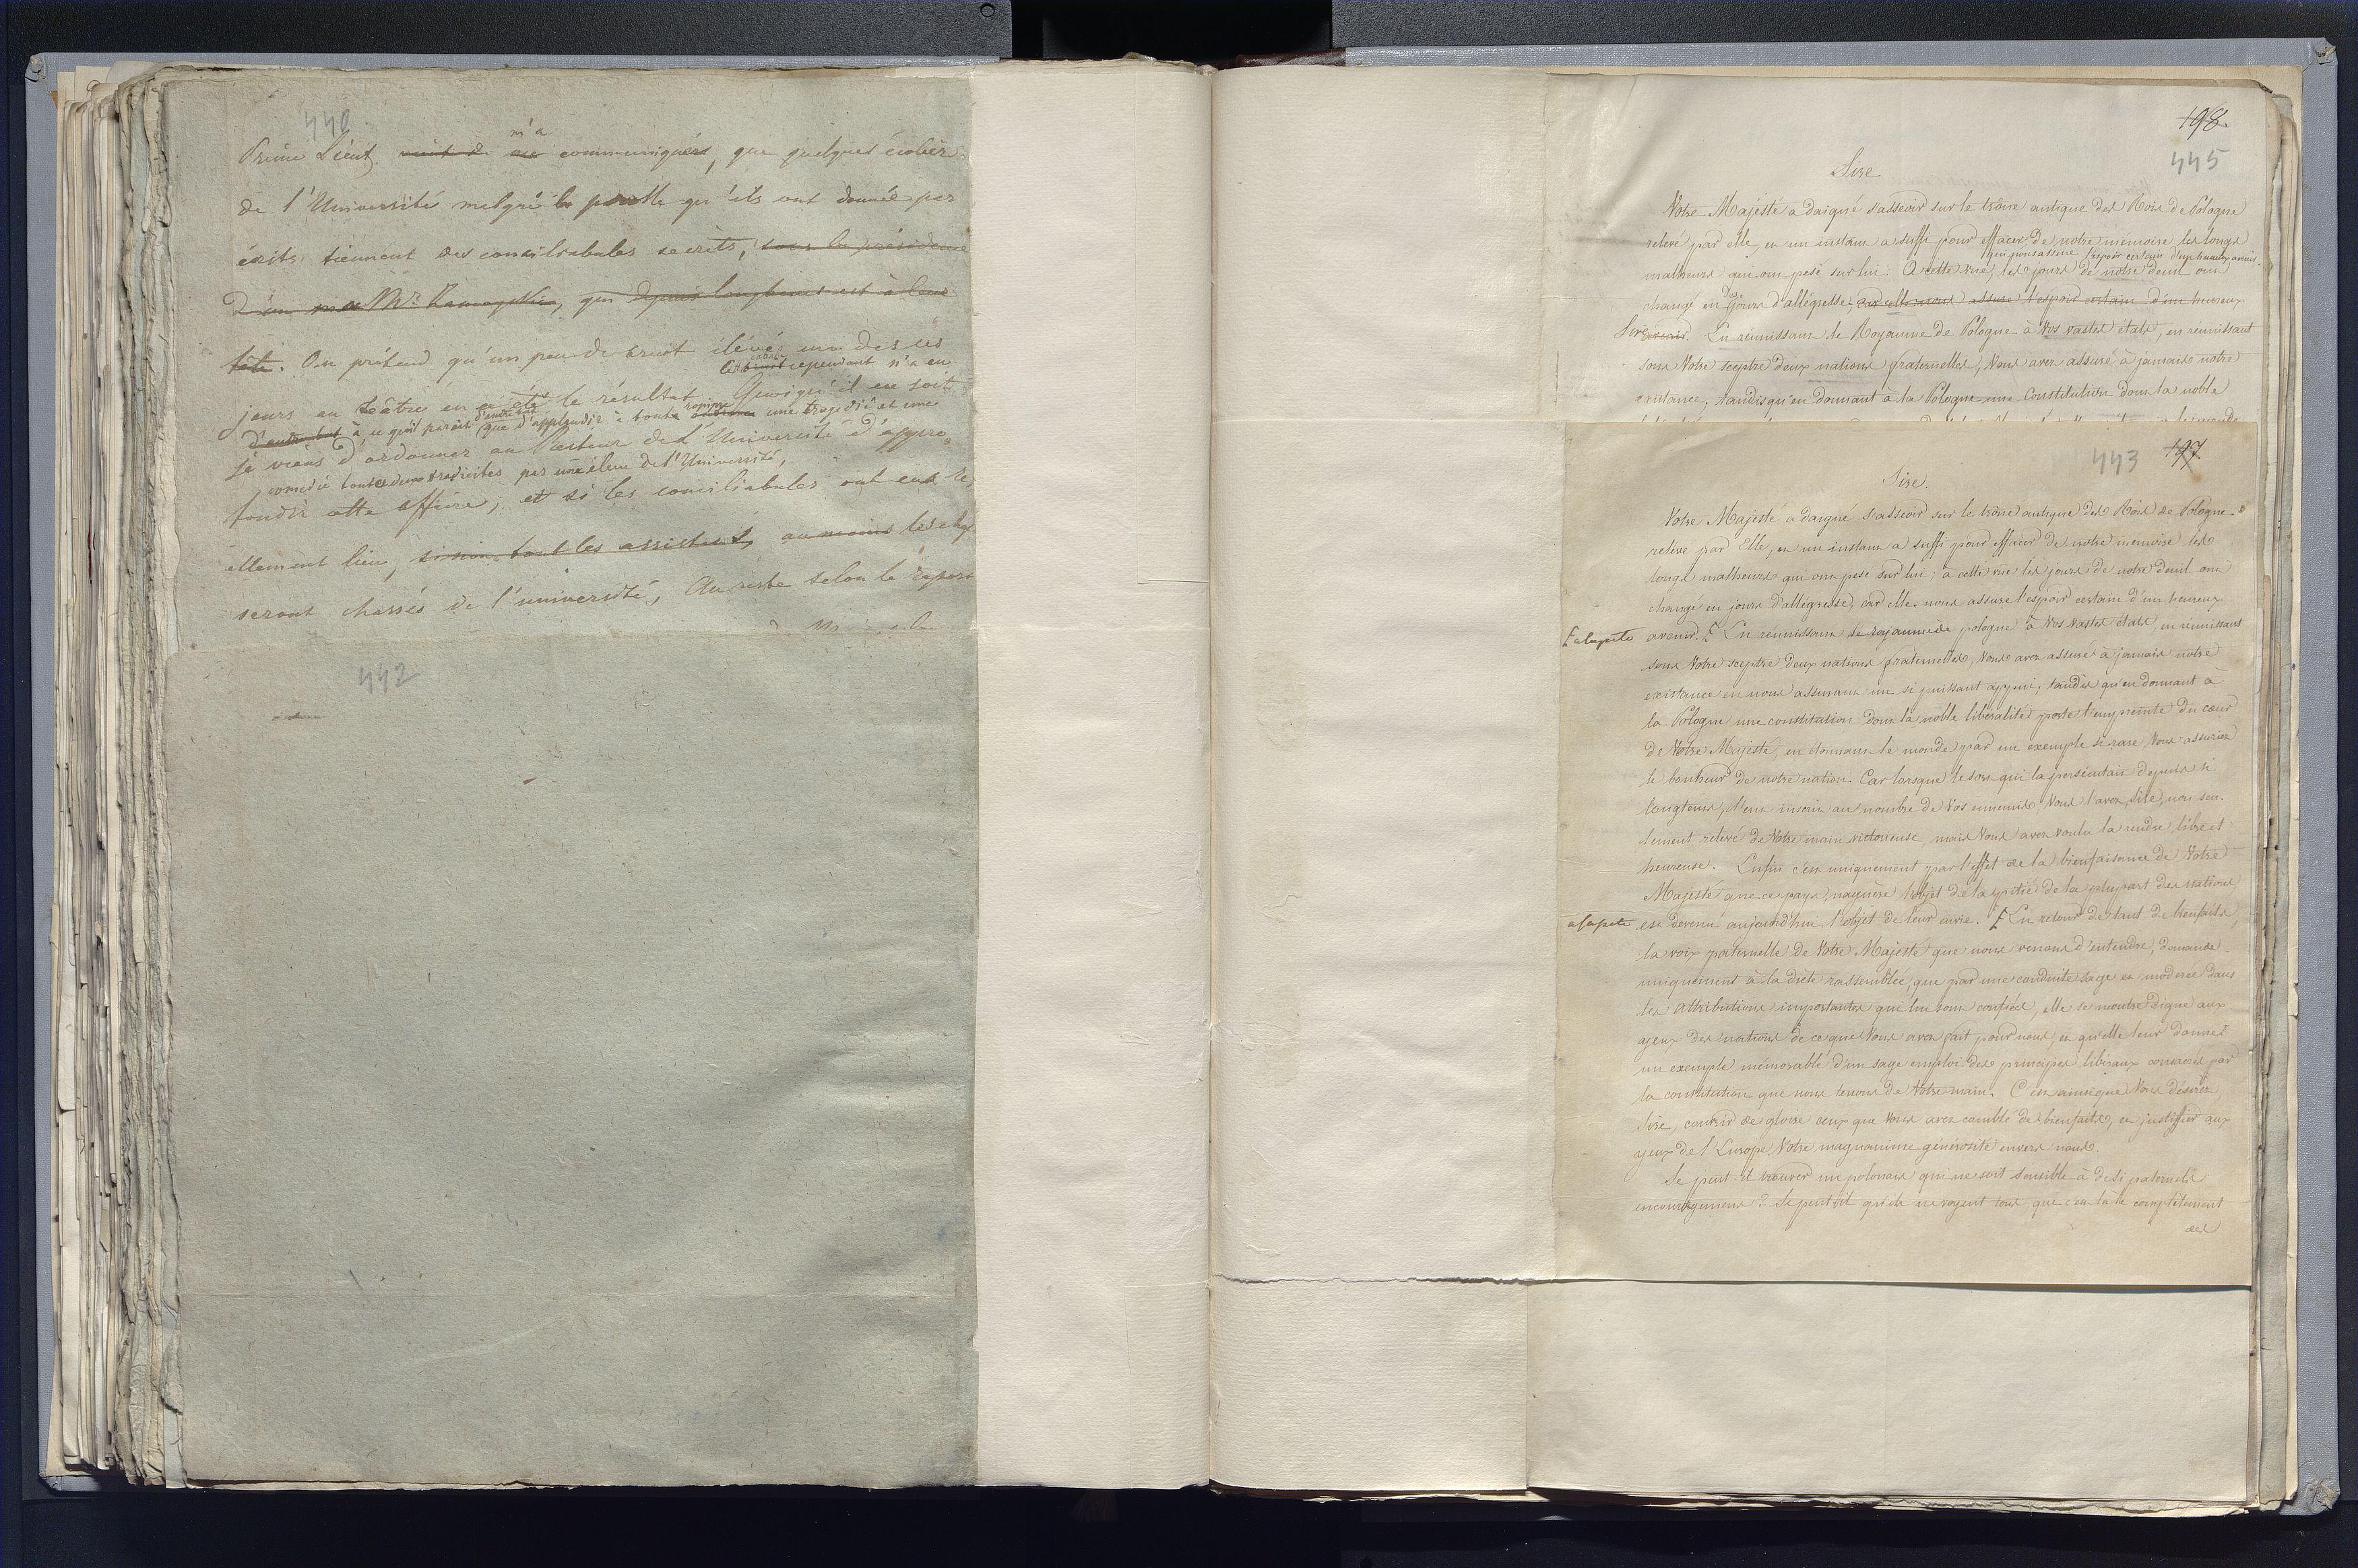 440
m'a
Prince Lieut. vient de me communiquer, que quelques écoliers
de l'Université malgré la parolle qu'ils ont donnée par
écrits tiennent des conciliabules secrets, sous la présidence
d'un Mr., qui depuis longtems est à leur
tête. On prétend qu'un peu de bruit élévé un des ces
cependant n'a eu
jours au téâtre en a été le résultat. Quoiqu'il en soit
d'autre but à ce qu'il parait que d'applaudir à toute une tragedie et une
je viens d'ordonner au Recteur de l'Université d'appro
comedie toutes deux traduites par un élève de l'Université,
fondir cette affaire, et si les conciliabules ont eus ré
ellement lieu, sinon tout les assistants, au moins les chefs
seront chassés de l'université, Au reste selon le rapport
442
198.
445
Sire
Votre Majesté a daigné s'asseoir sur le trône antique des Rois de Pologne
relevé par elle, et un instant a suffi pour effacer de notre mémoire les longs
qui nous assure l'espoir certain d'un heureux avenir.
malheurs qui ont pesé sur lui. A cette vue, les jours de notre deuil ont
changé en des jours d'allégresse, car elle nous assure l'espoir certain d'un heureux
Sire avenir. En réunissant le Royaume de Pologne à Vos vastes états, en réunissant
sous Votre sceptre deux nations fraternelles, Vous avez assuré à jamais notre
existance; tandis qu'en donnant à la Pologne une Constitution dont la noble
443 197
Sire.
Votre Majesté a daigné s'asseoir sur le trône antique des Rois de Pologne
relevé par Elle, et un instant a suffi pour effacer de notre mémoire les
longs malheurs qui ont pesé sur lui; à cette vue les jours de notre deuil ont
changé en jours d'allégresse, car elle nous assure l'espoir certain d'un heureux
avenir. En réunissant le royaume de pologne à Vos vastes états, en réunissant
sous Votre sceptre deux nations fraternelles, Vous avez assuré à jamais notre
existance en nous assurant un si puissant appui; tandis qu'en donnant à
la Pologne une constitution dont la noble libéralité porte l'empreinte du cœur
de Votre Majesté, en étonnant le monde par un exemple si rare, Vous assuriez
le bonheur de notre nation. Car lorsque le sort qui la persécutait depuis si
longtems, l'eut inscrit au nombre de Vos ennemis, Vous l'avez, Sire, non seu-
lement relevé de Votre main victorieuse, mais Vous avez voulu la rendre libre et
heureuse. Enfin c'est uniquement par l'effet de la bienfaisance de Votre
Majesté que ce pays, naguère l'objet de la pitié de la plupart des nations,
est devenu aujourd'hui l'objet de leur envie. En retour de tant de bienfaits,
la voix paternelle de Votre Majesté que nous venons d'entendre, demande
uniquement à la diète rassemblée, que par une conduite sage et moderée dans
les attributions importantes qui lui sont confiées, elle se montre digne aux
yeux des nations de ce que Vous avez fait pour nous, et qu'elle leur donne
un exemple mémorable d'un sage emploi des principes libéraux consacrés par
la constitution que nous tenons de Votre main. C'est ainsi que Vous désirez,
Sire, couvrir de gloire ceux que Vous avez comblé de bienfaits, et justifier aux
yeux de l'Europe, Votre magnanime générosité envers nous.
Se peut-il trouver un polonais qui ne soit sensible à de si paternels
encouragemens? Se peut-il qu'ils ne voyent tous que c'est là le complètement
des